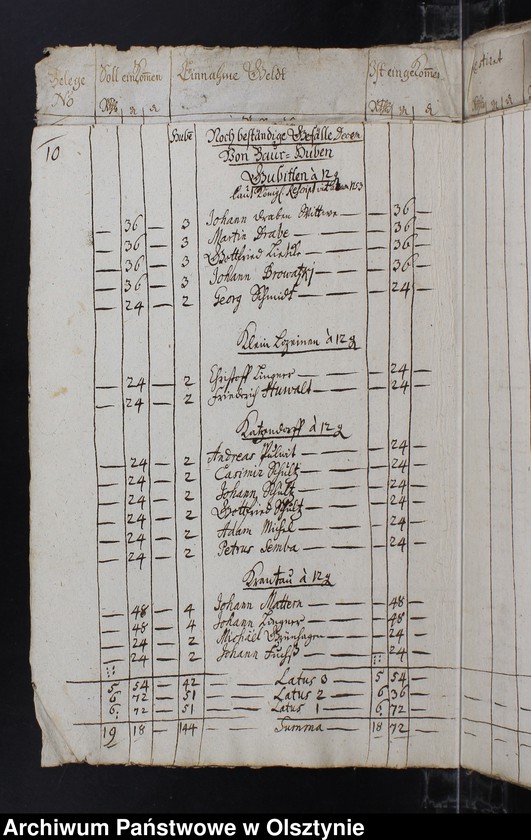 Belege No | Soll einkommen | Einnahme Geldt | Ist eingekommen
Rthlr | g | d | Rthlr | g | d
10 | Hube | Noch beständige Gefälle, Deren
Von Baur-Huben
à 12 g
laut Königl. Rescript
— 36 — 3 Johann Graben Wittwe — — 36 —
— 36 — 3 Martin Drabe — — 36 —
— 36 — 3 Gottfried — — 36 —
— 36 — 3 Johann Browatzki — — 36 —
— 24 — 2 Georg Schmidt — — 24 —
Klein à 12 g
— 24 — 2 Christoff Lingner — — 24 —
— 24 — 2 Friederich Huwalt — — 24 —
Katzendorff à 12 g
— 24 — 2 Andreas — — 24 —
— 24 — 2 Casimir Schultz — — 24 —
— 24 — 2 Johann Schultz — — 24 —
— 24 — 2 Gottfried Schultz — — 24 —
— 24 — 2 Adam Michel — — 24 —
— 24 — 2 Petrus Semba — — 24 —
Krentau à 12 g
— 48 — 4 Johann Mattern — — 48 —
— 48 — 4 Johann Lingner — — 48 —
— 24 — 2 Michael Grünhagen — — 24 —
— 24 — 2 Johann Fuchs — — 24 —
5 54 — 42 — Latus 3 5 54 —
6 72 — 51 — Latus 2 6 36 —
6 72 — 51 — Latus 1 6 72 —
19 18 — 144 — Summa — 18 72 —
Archiwum Państwowe w Olsztynie